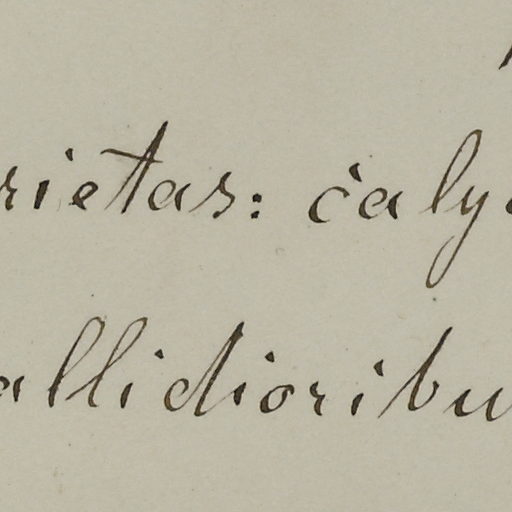 rietas: caly
allidioribu